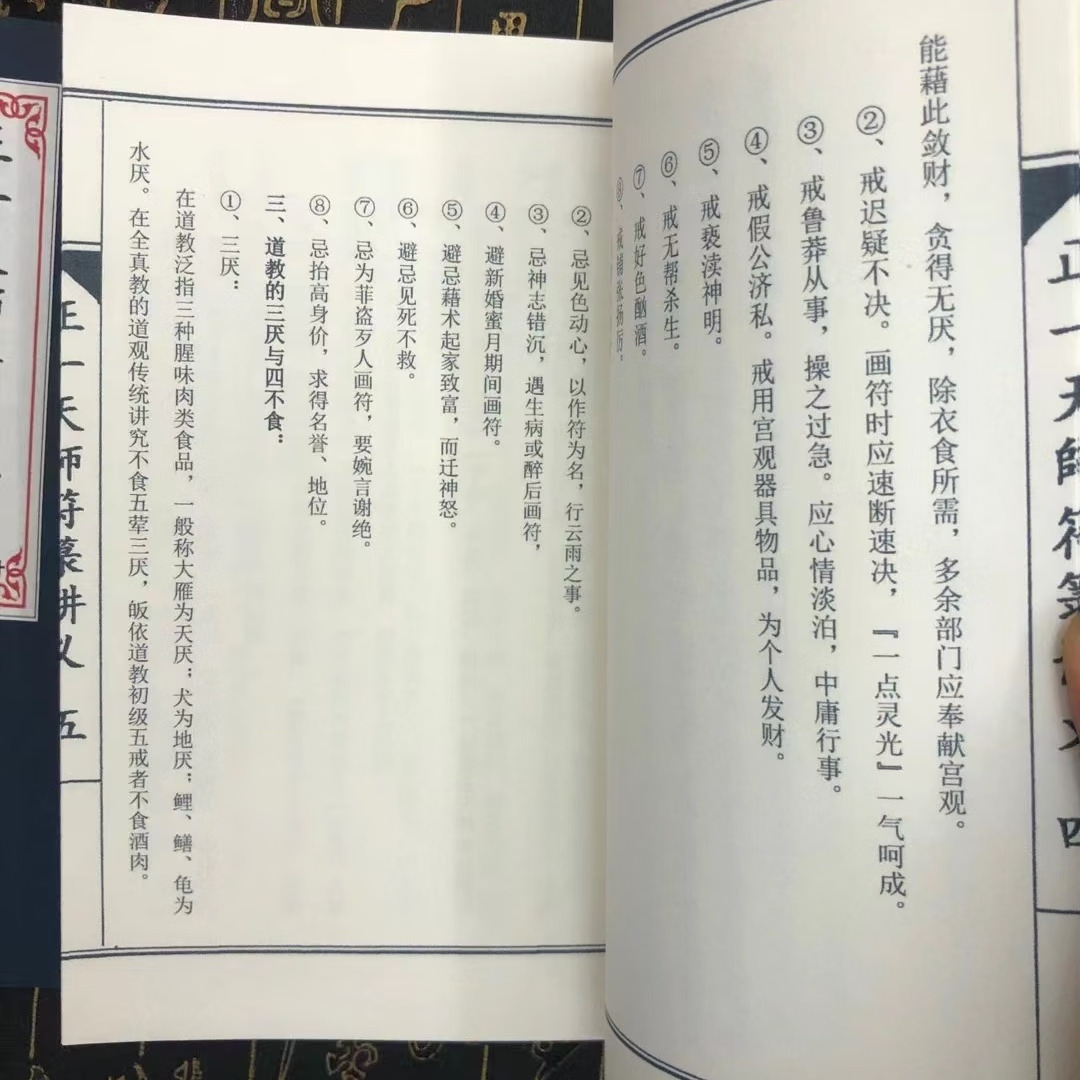 能藉此敛财，贪得无厌，除衣食所需，多余部门应奉献宫观。
②、戒迟疑不决。画符时应速断速决，『一点灵光』一气呵成。
③、戒鲁莽从事，操之过急。应心情淡泊，中庸行事。
④、戒假公济私。戒用宫观器具物品，为个人发财。
⑤、戒亵渎神明。
⑥、戒无帮杀生。
⑦、戒好色酗酒。
⑧、戒铺张扬厉。
正一天師符篆
四
②、忌见色动心，以作符为名，行云雨之事。
③、忌神志错沉，遇生病或醉后画符，
④、避新婚蜜月期间画符。
⑤、避忌藉术起家致富，而迁神怒。
⑥、避忌见死不救。
⑦、忌为菲盗歹人画符，要婉言谢绝。
⑧、忌抬高身价，求得名誉、地位。
三、道教的三厌与四不食：
①、三厌：
在道教泛指三种腥味肉类食品，一般称大雁为天厌；犬为地厌；鲤、鳝、龟为
水厌。在全真教的道观传统讲究不食五荤三厌，皈依道教初级五戒者不食酒肉。
正一天师符篆讲义 五